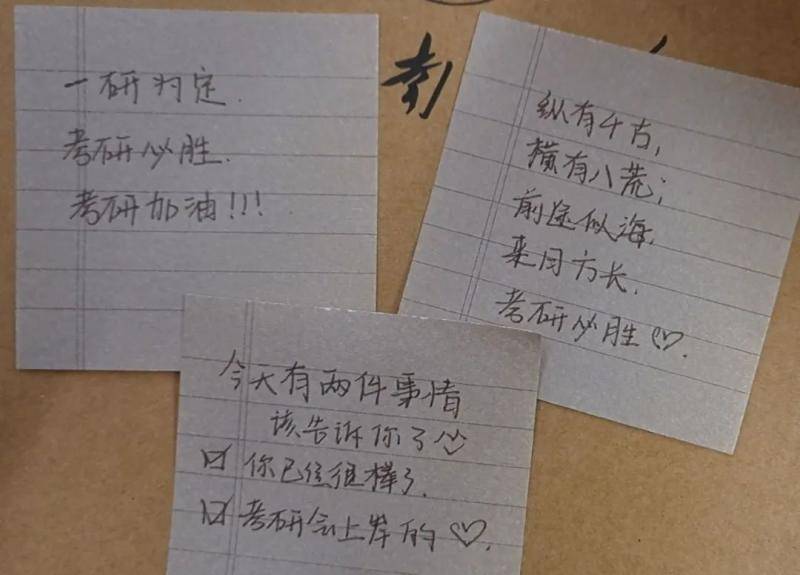 一研为定.
考研必胜.
考研加油!!!
纵有千古,
横有八荒;
前途似海,
来日方长.
考研必胜♡.
今天有两件事情
该告诉你了
☑ 你已经很棒了.
☑ 考研会上岸的♡.